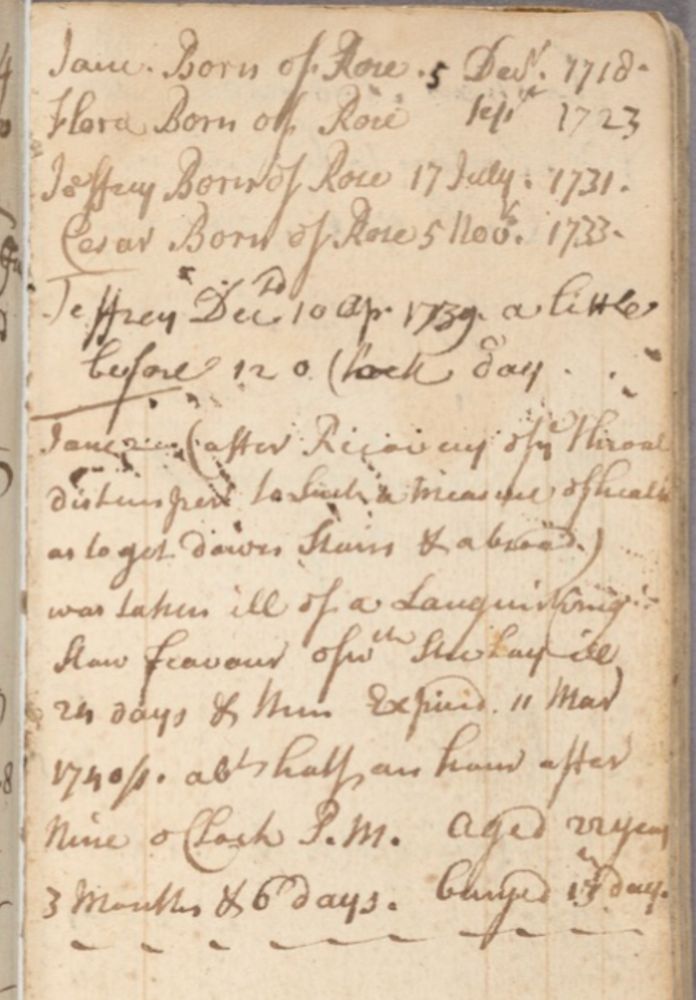 Jane. Born of Rose. 5 Decr. 1718.
Flora Born of Rose Sept 1723
Jeffrey Born of Rose 17 July. 1731.
Cesar Born of Rose 5 Novr. 1733.
Jeffrey Decd 10 Apr. 1739. a little
before 12 o Clock day.
Jane (after Recovery of ye throat
distemper to Such a measure of health
as to get down Stairs & abroad.)
was taken ill of a Languishing
Slow feavour of wch She Lay ill
24 days & then Expired. 11 Mar
1740/1. abt half an hour after
Nine o Clock P.M. aged 22 years
3 Months & 6 days. buryed 13th day.